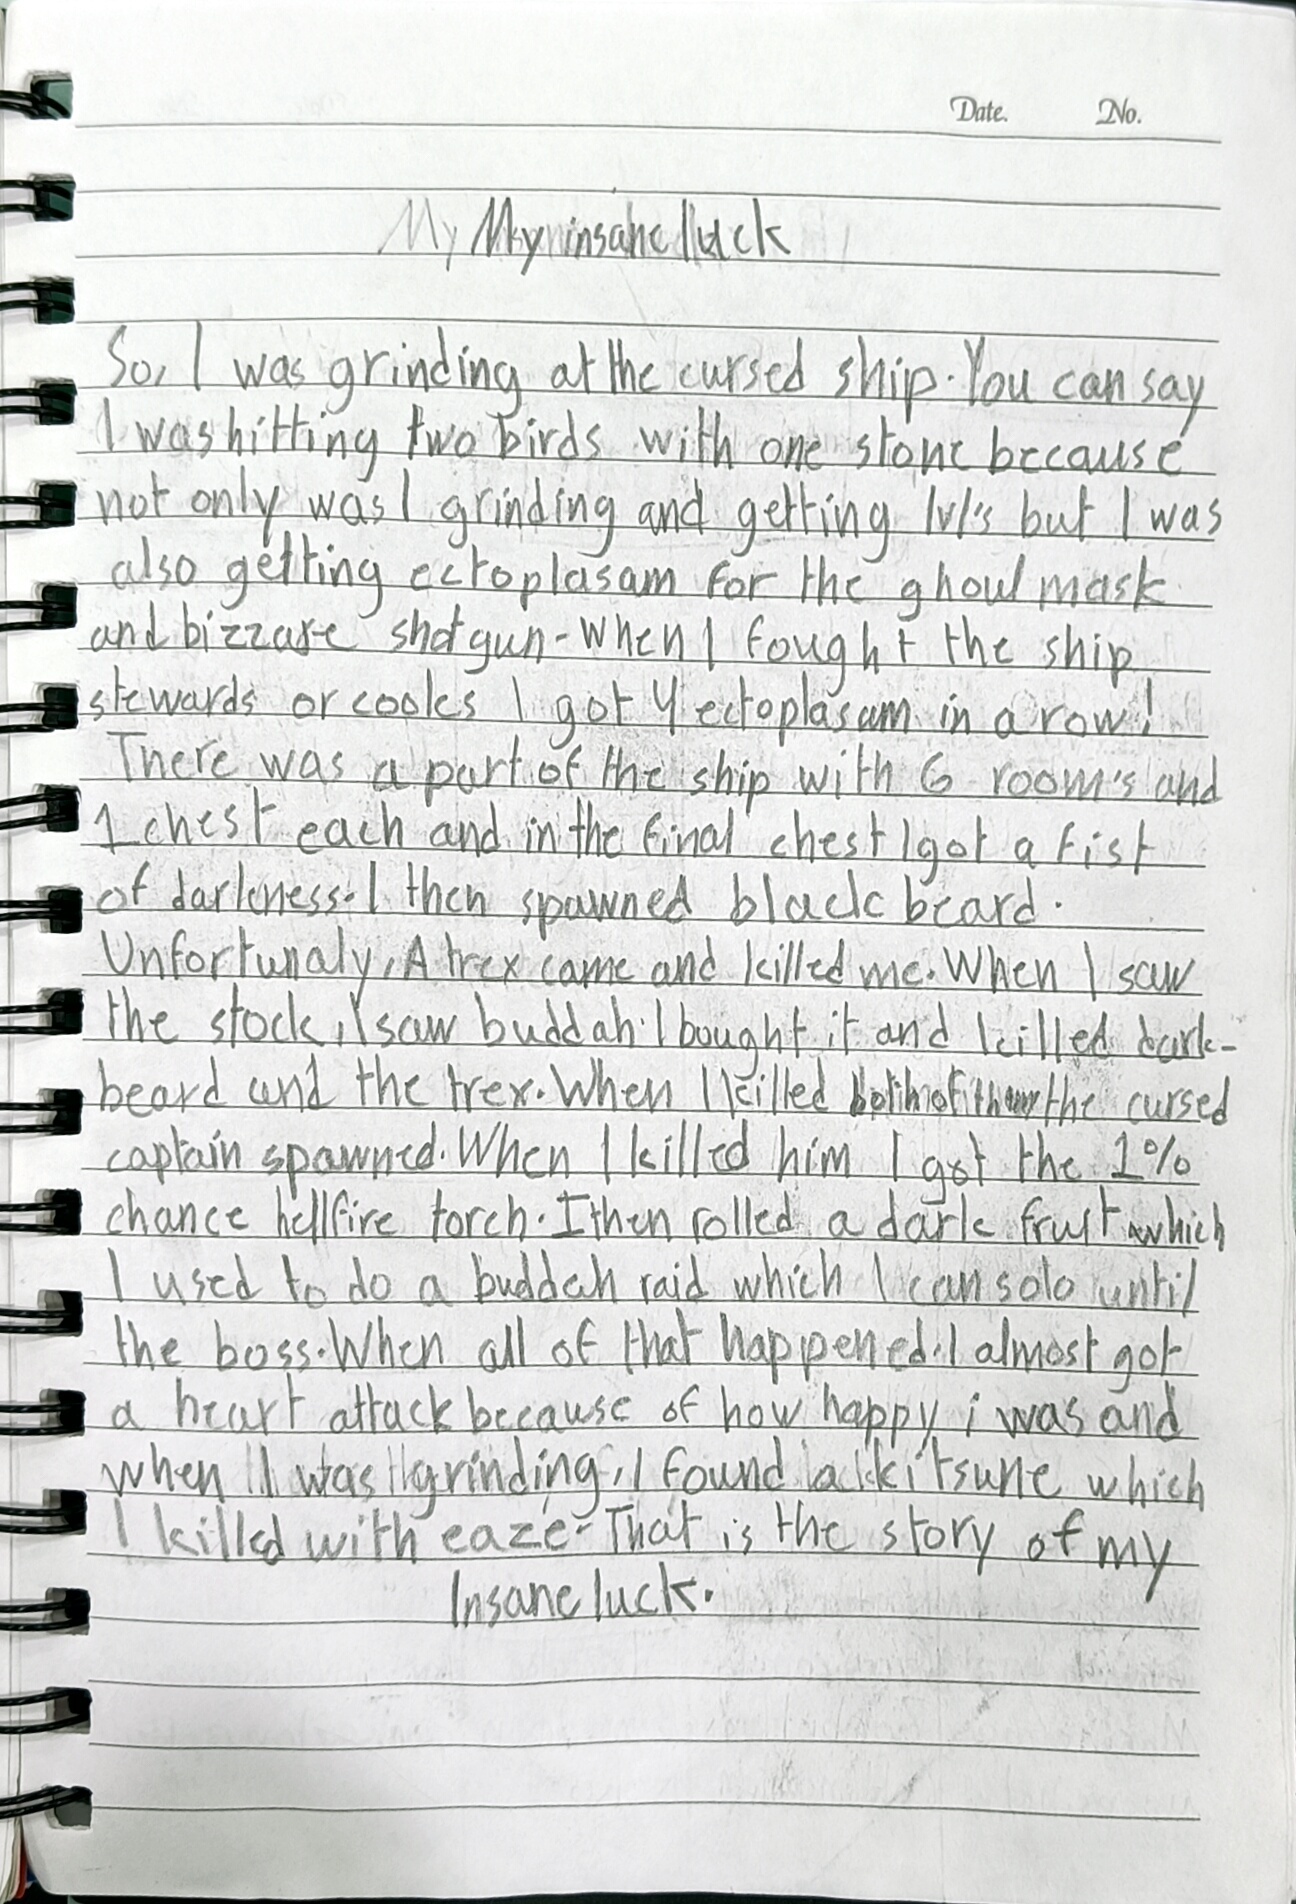 Date. No.
My insane luck
So, I was grinding at the cursed ship. You can say
I was hitting two birds with one stone because
not only was I grinding and getting lvl's but I was
also getting ectoplasam for the ghoul mask
and bizzare shotgun. When I fought the ship
stewards or cooks I got 4 ectoplasam in a row!
There was a part of the ship with 6 room's and
1 chest each and in the final chest I got a fist
of darkness. I then spawned black beard.
Unfortunaly, A trex came and killed me. When I saw
the stock, I saw buddah. I bought it and killed dark-
beard and the trex. When I killed both of them the cursed
captain spawned. When I killed him I got the 1%
chance hellfire torch. I then rolled a dark fruit which
I used to do a buddah raid which I can solo until
the boss. When all of that happened. I almost got
a heart attack because of how happy i was and
when I was grinding, I found a kitsune which
I killed with eaze. That is the story of my
Insane luck.